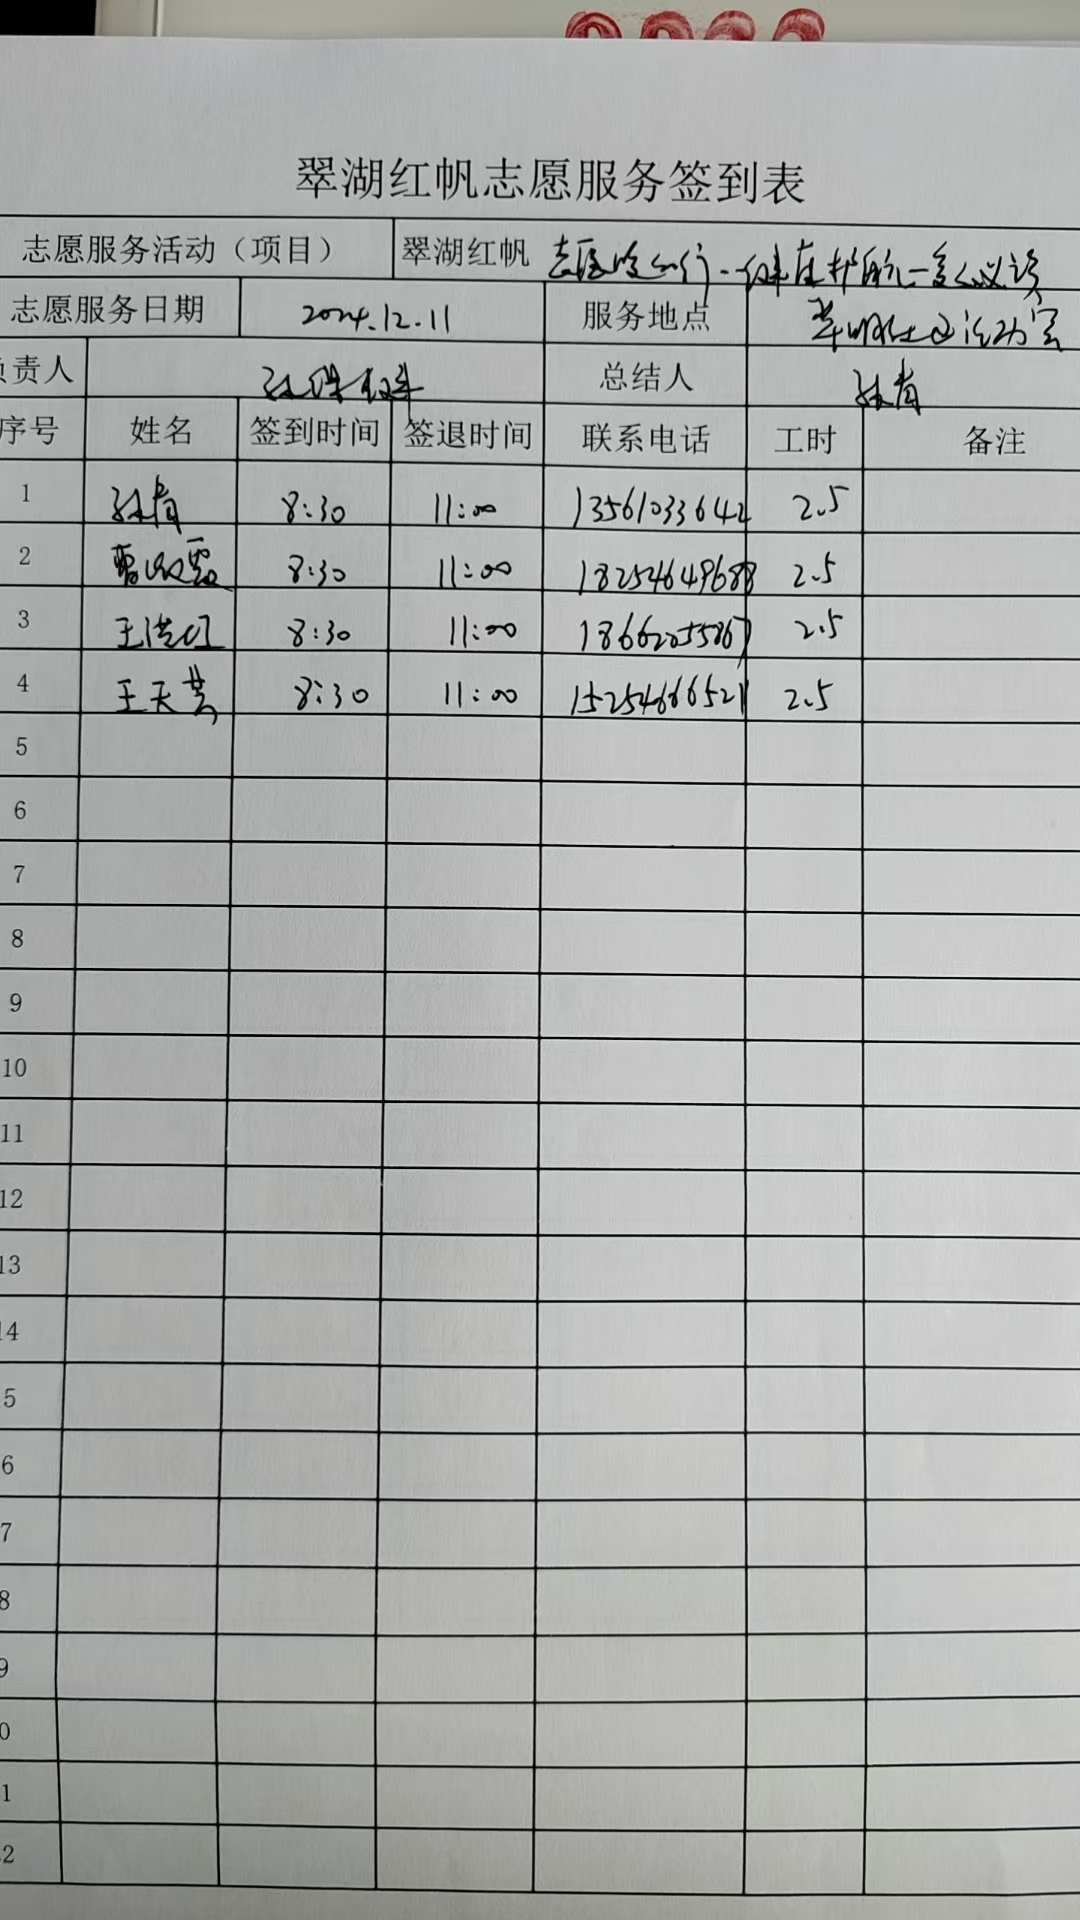 翠湖红帆志愿服务签到表
志愿服务活动（项目） 翠湖红帆
志愿服务日期 2024.12.11 服务地点
负责人 总结人 孙青
序号 姓名 签到时间 签退时间 联系电话 工时 备注
1 孙青 8:30 11:00 13561033642 2.5
2 8:30 11:00 18254649688 2.5
3 王洪红 8:30 11:00 18662055867 2.5
4 王天芸 8:30 11:00 15254666521 2.5
5
6
7
8
9
10
11
12
13
14
5
6
7
8
9
0
1
2